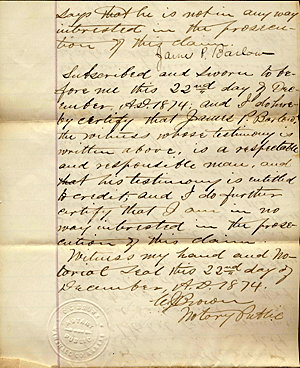 says that he is not in any way
interested in the prosecu-
tion of this claim.
James P. Barlow
Subscribed and sworn to be-
fore me this 22nd day of De-
cember, A.D. 1874; and I do here-
by certify that James P. Barlow
the witness whose testimony is
written above, is a respectable
and responsible man, and
that his testimony is entitled
to credit, and I do further
certify that I am in no
way interested in the prose-
cution of this claim
Witness my hand and No-
torial Seal this 22nd day of
December, A.D. 1874.
Brown
Notary Public